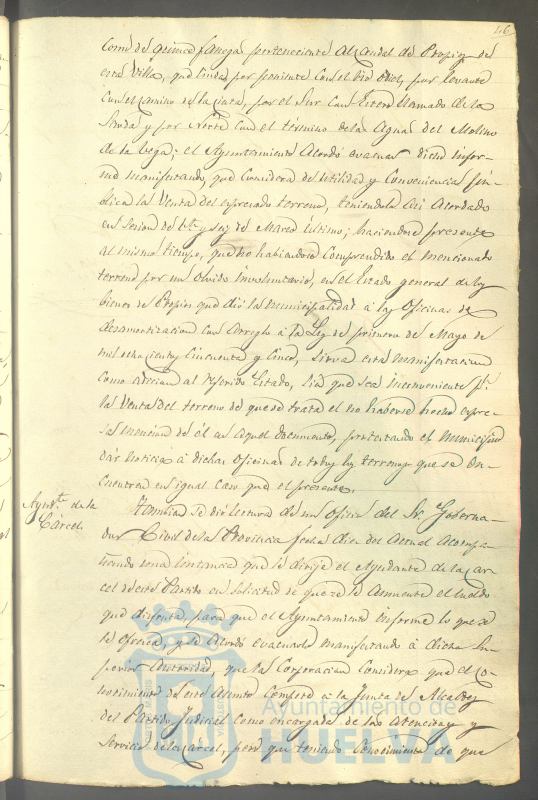 46
como de quince fanegas perteneciente al caudal de Propios de
esta Villa, que linda por poniente con el Rio Odiel, por levante
con el camino de la cinta, por el Sur con Estero llamado de la
y por Norte con el término de las Aguas del Molino
de la Vega; el Ayuntamiento Acordó evacuar dicho infor-
me manifestando, que considera de utilidad y conveniencia pú-
blica la Venta del expresado terreno, teniendola así Acordado
en Sesion de veinte y seis de Marzo último; haciendose presente
al mismo tiempo, que no habiendose comprendido el mencionado
terreno por un olvido involuntario, en el Estado general de los
bienes de Propios que dió la municipalidad á las Oficinas de
desamortizacion con arreglo á la Ley de primero de Mayo de
mil ochocientos cincuenta y cinco, sirva esta manifestacion
como adicion al referido Estado, sin que sea inconveniente pª.
la Venta del terreno de que se trata el no haberse hecho expre-
sa mencion de él en aquel documento, protestando el municipio
dar noticia á dichas oficinas de todos los terrenos que se en-
cuentren en igual caso que el presente.
Ayudte. de la
Cárcel
Tambien se dió lectura de un Oficio del Sr. Goberna-
dor Civil de la Provincia fecha diez del Actual Acompa-
ñando una instancia que le dirije el Ayudante de la Car-
cel de este Partido en solicitud de que se le Aumente el sueldo
que disfruta, para que el Ayuntamiento informe lo que se
le ofrezca, y se acordó evacuarlo manifestando á dicha Su-
perior Autoridad, que la Corporacion Considera que el Co-
nocimiento de este Asunto Compete á la Junta de Alcaldes
del Partido Judicial como encargada de las Atenciones y
Servicios de la Cárcel, pero que teniendo Conocimiento de que
Ayuntamiento de
HUELVA